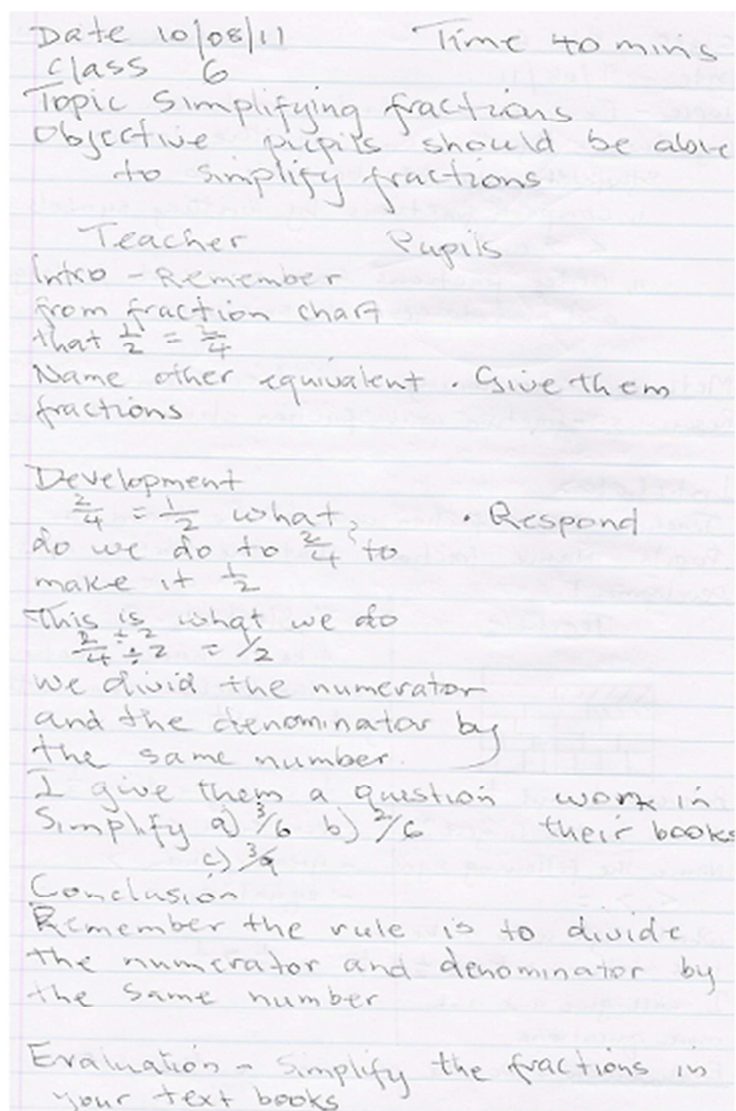 Date 10/08/11 Time 40 mins
Class 6
Topic Simplifying fractions
Objective pupils should be able
to simplify fractions
Teacher Pupils
Intro - Remember
from fraction chart
that 1/2 = 2/4
Name other equivalent . Give them
fractions
Development
2/4 = 1/2 what, . Respond
do we do to 2/4 to
make it 1/2
This is what we do
2/4 ÷2/÷2 = 1/2
We divid the numerator
and the denominator by
the same number.
I give them a question work in
Simplify a) 3/6 b) 2/6 their books
c) 3/9
Conclusion
Remember the rule is to divide
the numerator and denominator by
the same number
Evaluation - Simplify the fractions in
your text books